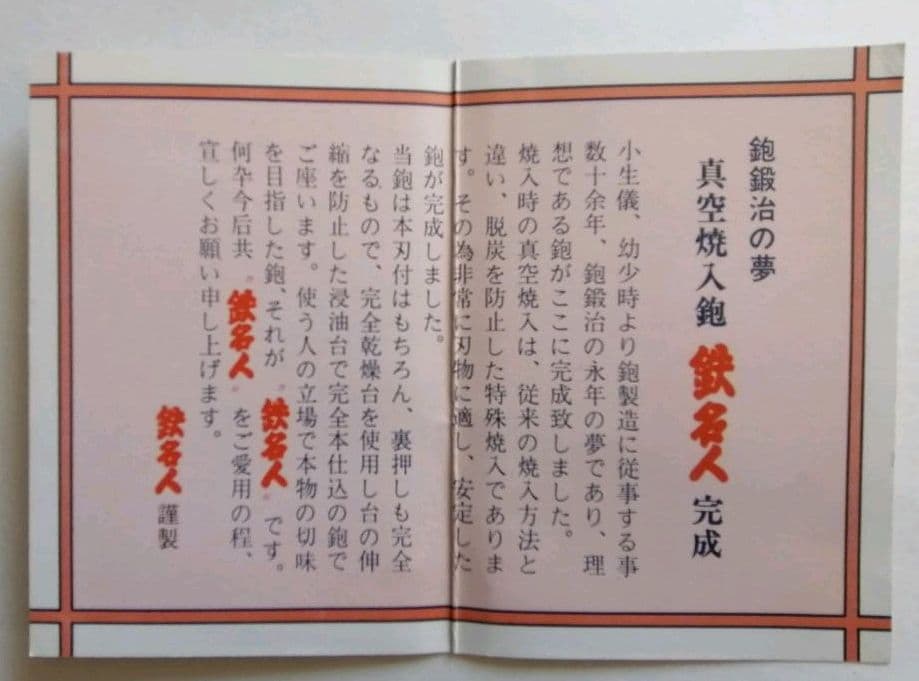 鉋鍛冶の夢
真空焼入鉋 鉄名人 完成
小生儀、幼少時より鉋製造に従事する事
数十余年、鉋鍛冶の永年の夢であり、理
想である鉋がここに完成致しました。
焼入時の真空焼入は、従来の焼入方法と
違い、脱炭を防止した特殊焼入でありま
す。その為非常に刃物に適し、安定した
鉋が完成しました。
当鉋は本刃付はもちろん、裏押しも完全
なるもので、完全乾燥台を使用し台の伸
縮を防止した浸油台で完全本仕込の鉋で
ご座います。使う人の立場で本物の切味
を目指した鉋、それが〝鉄名人〟です。
何卆今后共〝鉄名人〟をご愛用の程、
宜しくお願い申し上げます。
鉄名人 謹製